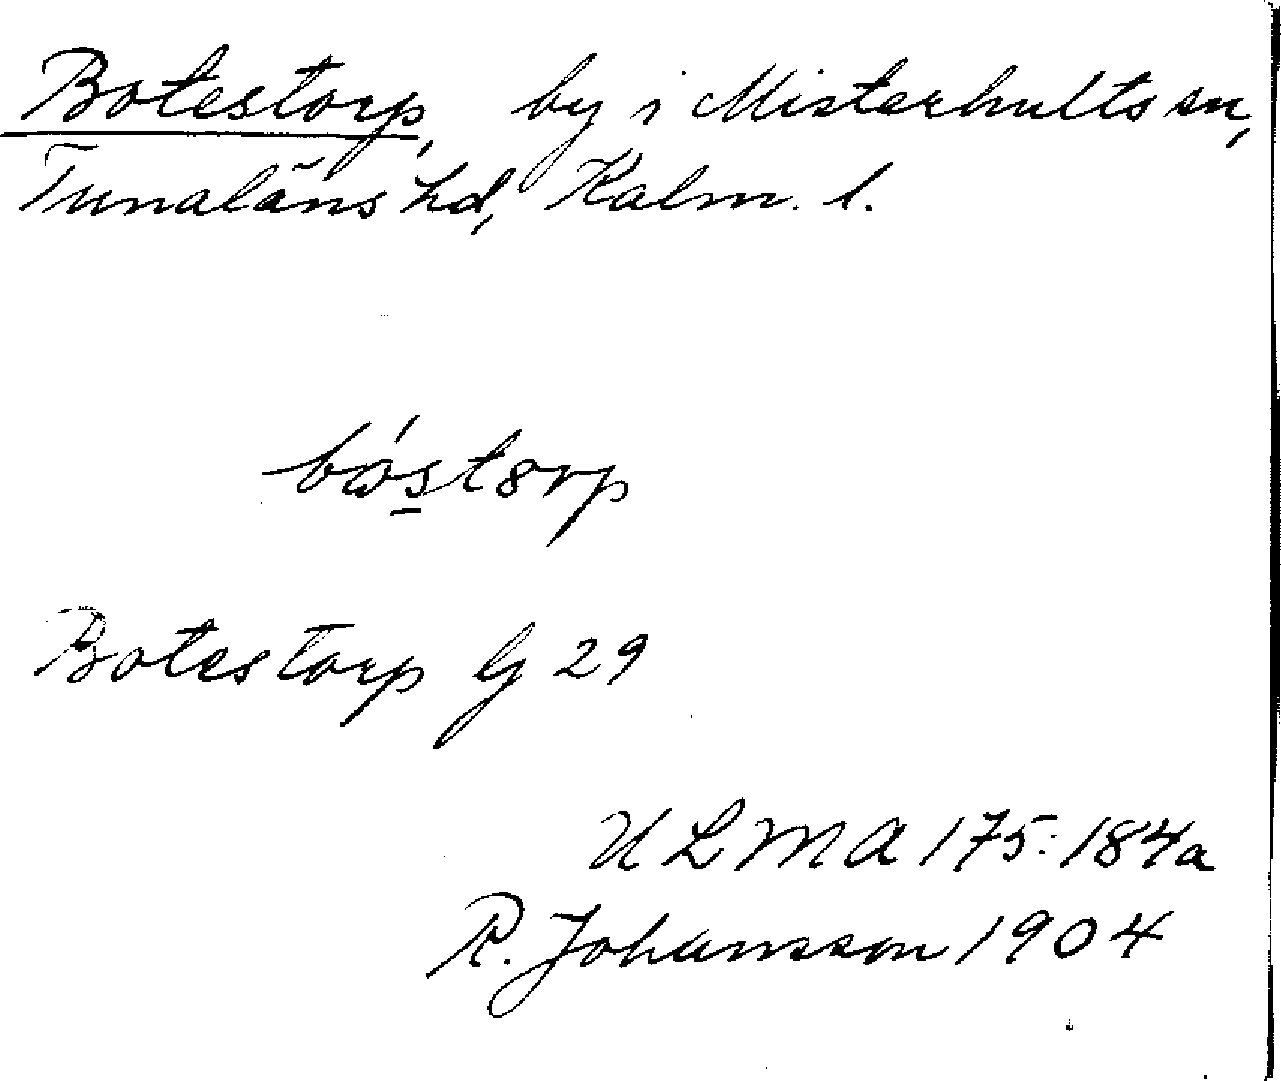 Botestorp, by i Misterhults sn,
Tunaläns hd, Kalm. l.
bo̍s̱tørp
Botestorp G 29
ULMA 175:184a
R. Johansson 1904